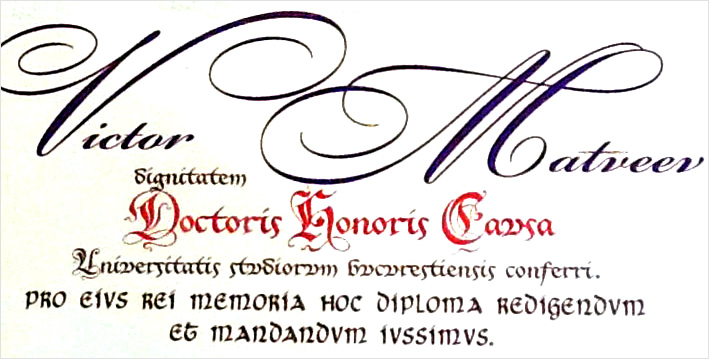 Victor Matveev
dignitatem
Doctoris Honoris Cavsa
Vniversitatis stvdiorvm bvcvrestiensis conferri.
PRO EIVS REI MEMORIA HOC DIPLOMA REDIGENDVM
ET MANDANDVM IVSSIMVS.